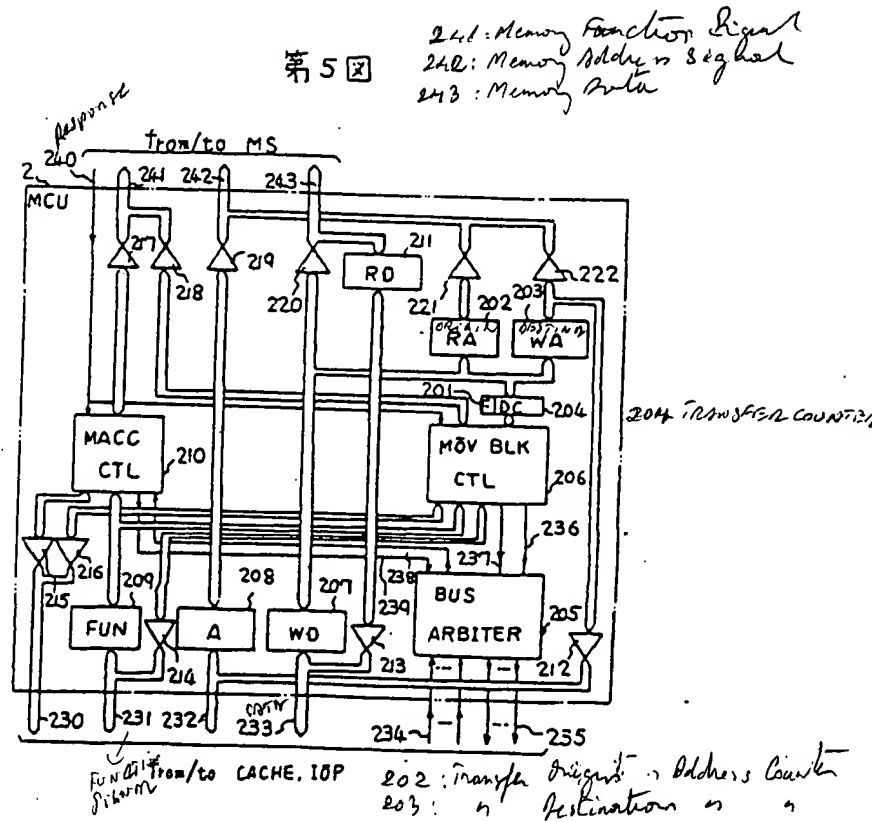 241: Memory Function Signal
242: Memory Address Signal
243: Memory Data
第5図
Response
from/to MS
240
241
242
243
2
MCU
217
218
219
220
RD
211
221
222
202
203
RA
WA
201
E
DC
204
204 TRANSFER COUNTER
MACC
CTL
210
MŌV BLK
CTL
206
236
237
238
239
216
215
209
208
207
BUS
ARBITER
205
FUN
A
WD
214
213
212
230
231
232
DATA
233
234
235
FUNCTION
SIGNAL
from/to CACHE, IŌP
202: Transfer Address Counter
203: " Destination " "